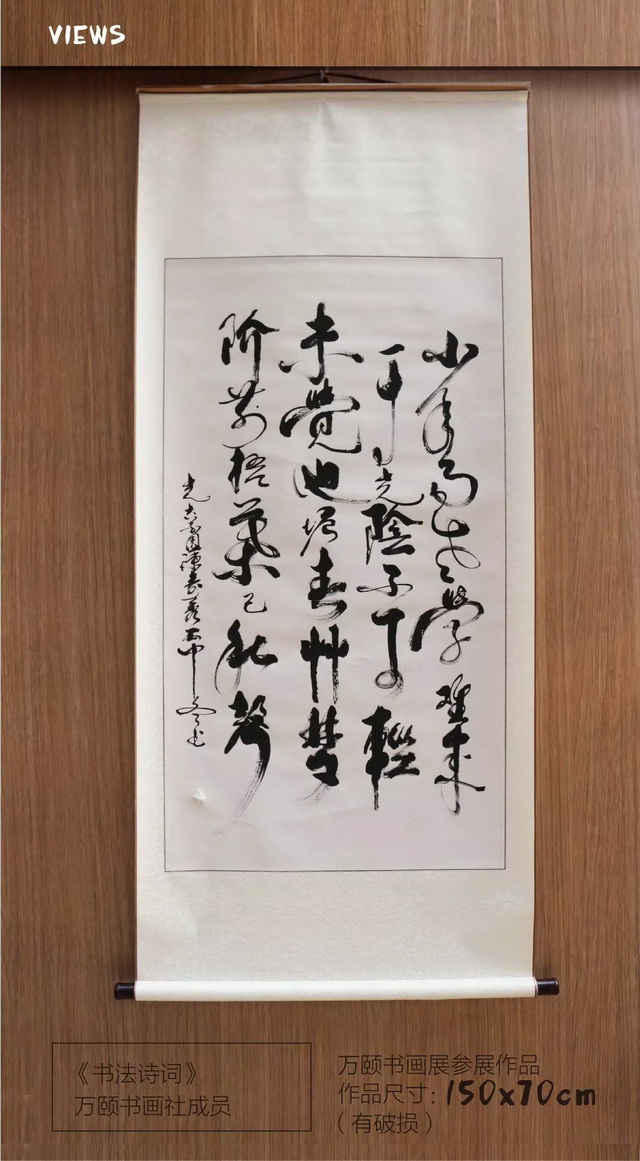 VIEWS
少年易老學難成
一寸光陰不可輕
未覺池塘春艸夢
阶前梧葉已秋聲
《书法诗词》
万颐书画社成员
万颐书画展参展作品
作品尺寸：150x70cm
（有破损）